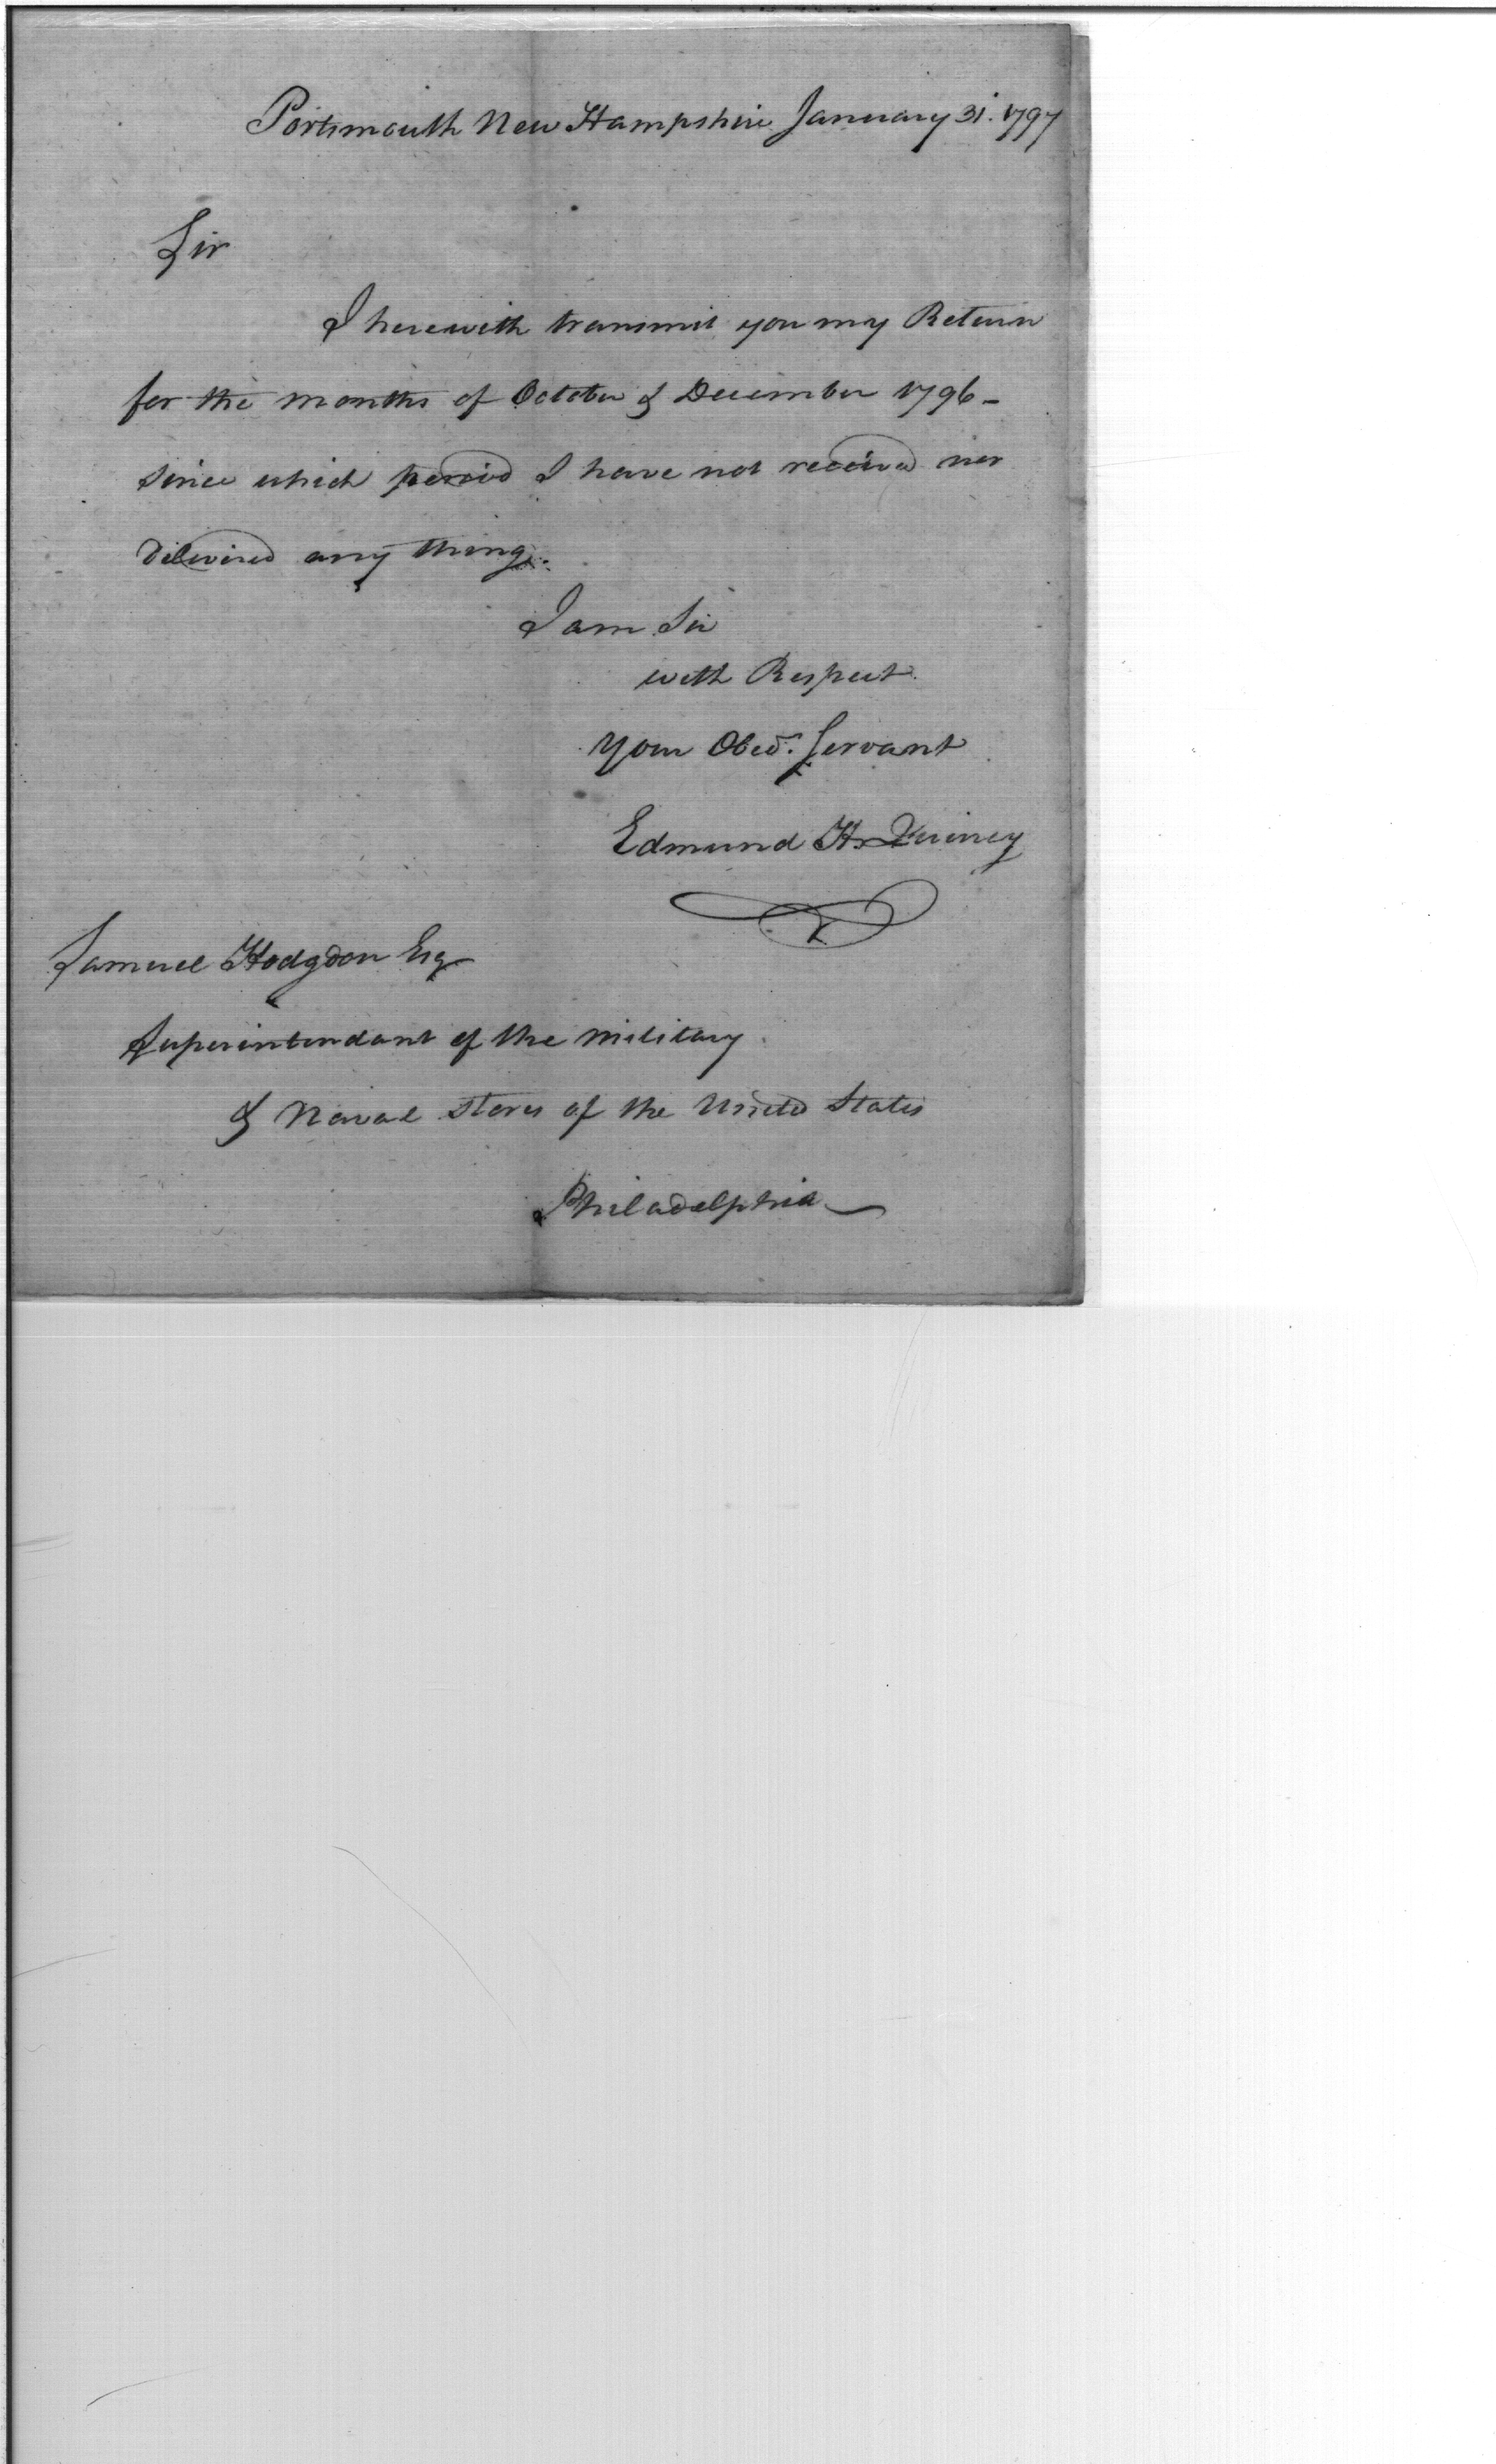 Portsmouth New Hampshire January 31. 1797
Sir
I herewith transmit you my Return
for the months of October & December 1796 -
since which period I have not received nor
Delivered any thing.
I am Sir
with Respect
Your Obed. Servant
Edmund H. Quincy
Samuel Hodgdon Esq
Superintendant of the military
& Naval stores of the United States
Philadelphia